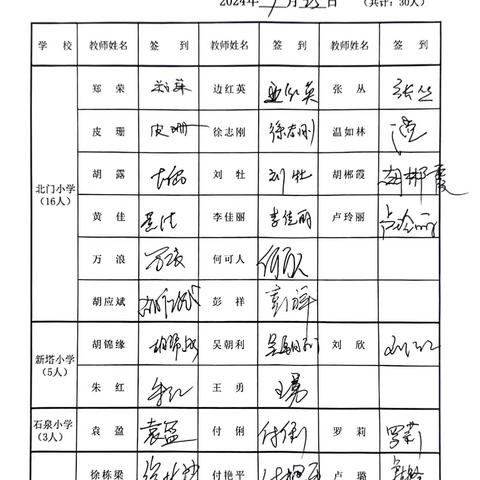 2024年 月 日 （共计：30人）
学 校 教师姓名 签 到 教师姓名 签 到 教师姓名 签 到
北门小学
（16人）
郑 荣 郑荣 边红英 边红英 张 丛 张丛
皮 珊 皮珊 徐志刚 徐志刚 温如林
胡 露 胡露 刘 牡 刘牡 胡郴霞 胡郴霞
黄 佳 黄佳 李佳丽 李佳丽 卢玲丽 卢玲丽
万 浪 万浪 何可人 何可人
胡应斌 胡应斌 彭 祥 彭祥
新塔小学
（5人）
胡锦缘 胡锦缘 吴朝利 吴朝利 刘 欣
朱 红 朱红 王 勇 王勇
石泉小学
（3人）
袁 盈 袁盈 付 俐 付俐 罗 莉 罗莉
徐栋梁 徐栋梁 付艳平 付艳平 卢 璐